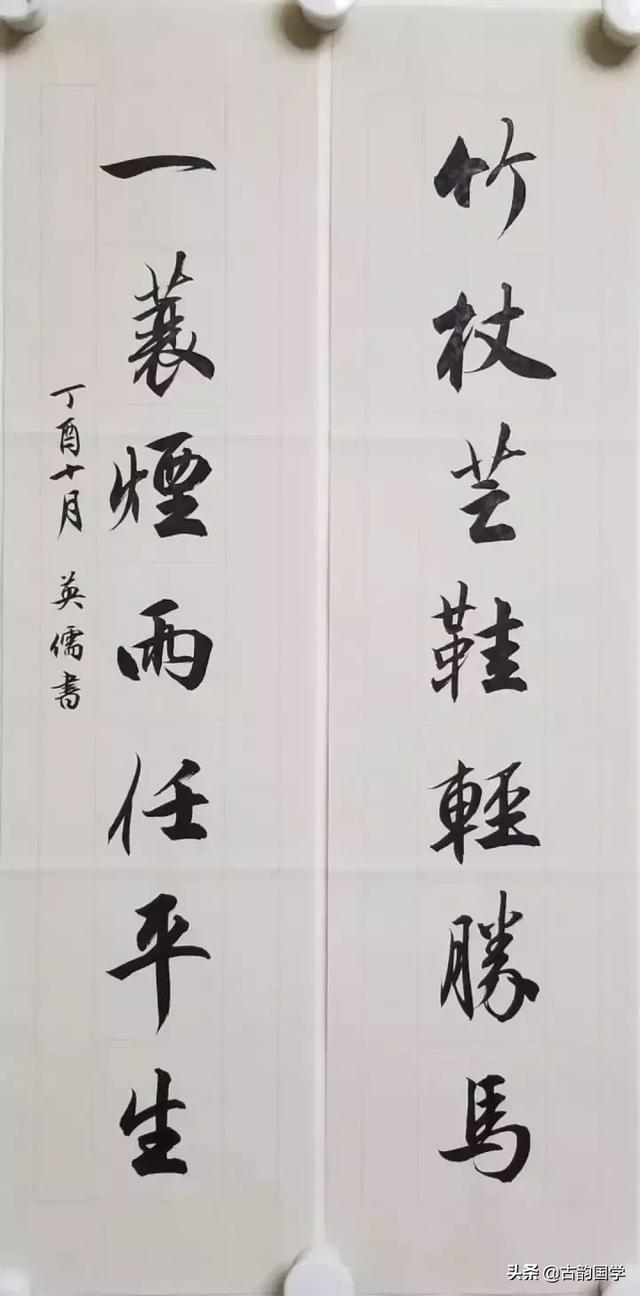 竹杖芸鞋輕勝馬
一蓑煙雨任平生
丁酉十月 英儒書
头条 @古韵国学